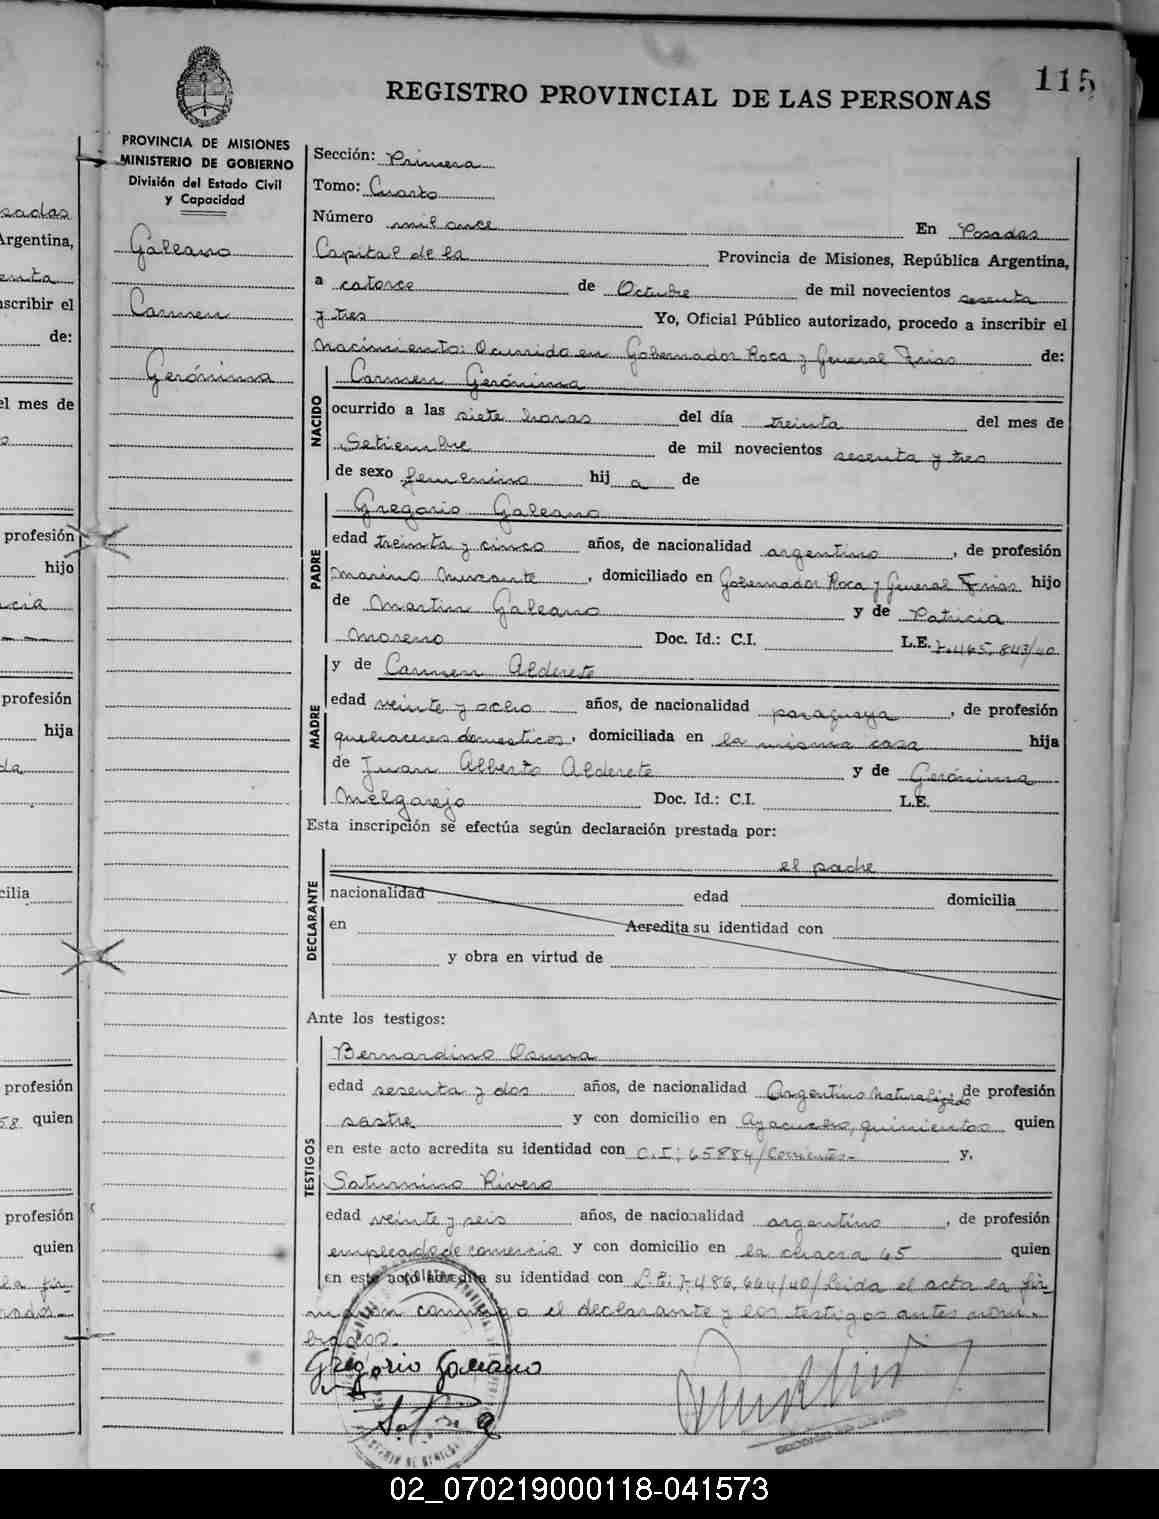 115
REGISTRO PROVINCIAL DE LAS PERSONAS
PROVINCIA DE MISIONES
MINISTERIO DE GOBIERNO
División del Estado Civil
y Capacidad
Galeano
Carmen
Gerónima
Sección: Primera
Tomo: Cuarto
Número mil once En Posadas
Capital de la Provincia de Misiones, República Argentina,
a catorce de Octubre de mil novecientos sesenta
y tres Yo, Oficial Público autorizado, procedo a inscribir el
Nacimiento: Ocurrido en Gobernador Roca y General Frias de:
NACIDO
Carmen Gerónima
ocurrido a las siete horas del día treinta del mes de
Setiembre de mil novecientos sesenta y tres
de sexo femenino hij a de
PADRE
Gregorio Galeano
edad treinta y cinco años, de nacionalidad argentino, de profesión
Marino Mercante, domiciliado en Gobernador Roca y General Frias hijo
de Martin Galeano y de Patricia
Moreno Doc. Id.: C.I. L.E. 7.465.843/40
y de Carmen Alderete
MADRE
edad veinte y ocho años, de nacionalidad paraguaya, de profesión
quehaceres domesticos, domiciliada en la misma casa hija
de Juan Alberto Alderete y de Gerónima
Melgarejo Doc. Id.: C.I. L.E.
Esta inscripción se efectúa según declaración prestada por:
DECLARANTE
el padre
nacionalidad edad domicilia
en Acredita su identidad con
y obra en virtud de
Ante los testigos:
TESTIGOS
Bernardino Osuna
edad sesenta y dos años, de nacionalidad Argentino Naturalizado de profesión
sastre y con domicilio en Ayacucho, quinientos quien
en este acto acredita su identidad con C.I: 65884/Corrientes- y.
Saturnino Rivero
edad veinte y seis años, de nacionalidad argentino, de profesión
empleado de comercio y con domicilio en la chacra 65 quien
en este acto acredita su identidad con L.E: 7.486.664/40/Leida el acta la fir-
maron conmigo el declarante y los testigos antes nom-
brados.
Gregorio Galeano
02_070219000118-041573